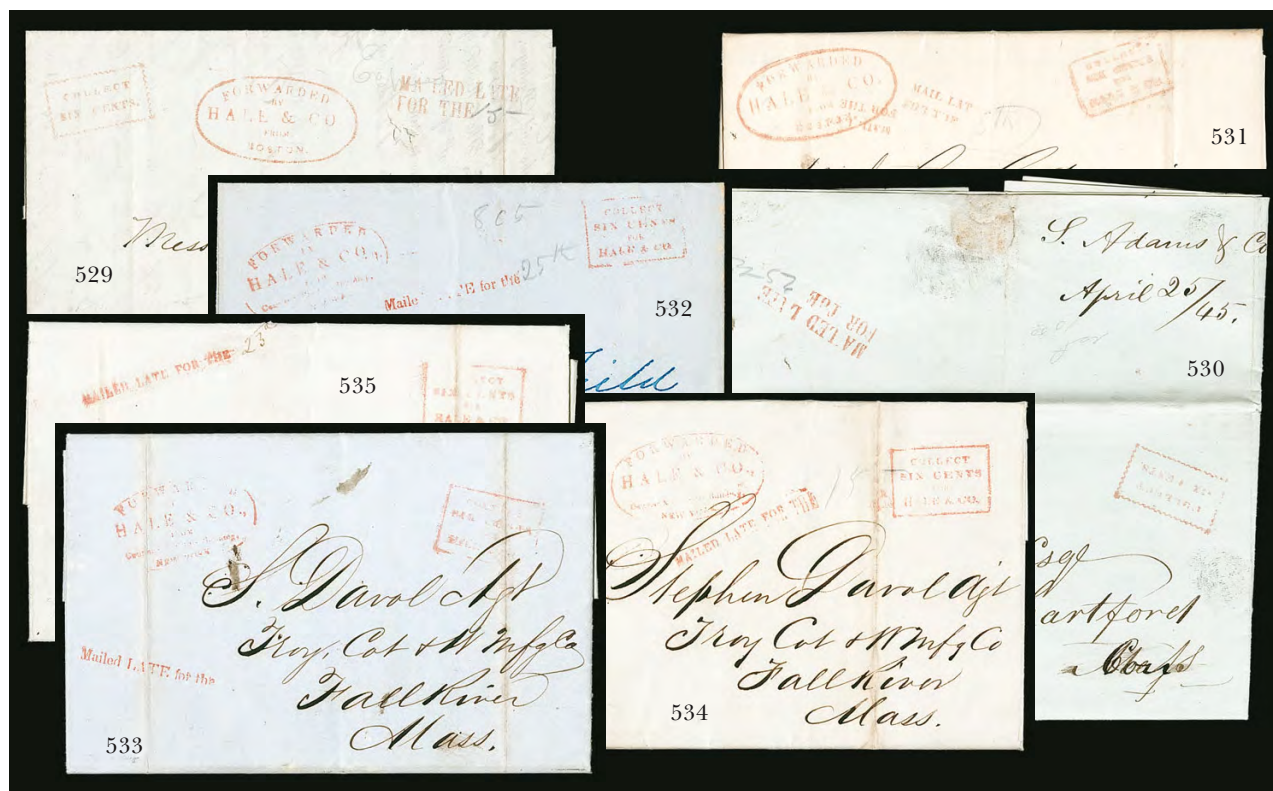 COLLECT
SIX CENTS.
FORWARDED
BY
HALE & CO
FROM
BOSTON.
MAILED LATE
FOR THE 15
Mess
529
FORWARDED
BY
HALE & CO.
MAIL LAT
HALE & CO.
531
FORWARDED
BY
HALE & CO.,
865
COLLECT
SIX CENTS
FOR
HALE & CO.
Mailed LATE for the 25th
532
ild
S. Adams & Co
April 25/45.
252
MAILED LATE
FOR THE
530
COLLECT
SIX CENTS
Esqr
artford
MAILED LATE FOR THE 23d
535
SIX CENTS
HALE & CO.
FORWARDED
HALE & CO.,
NEW YORK
S. Davol Agt
Troy, Cot & W Mfg Co
Fall River
Mass.
Mailed LATE for the
533
FORWARDED
BY
HALE & CO.,
NEW YORK
COLLECT
SIX CENTS
FOR
HALE & CO.
MAILED LATE FOR THE 15
Stephen Davol Agt
Troy Cot & W Mfg Co
Fall River
Mass.
534